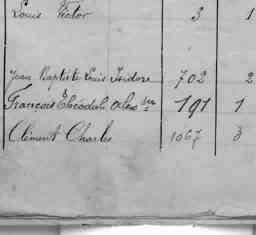 Louis Victor 3 1
Jean Baptiste Louis Isidore 702 2
François Théodule Alex dre 191 1
Clément Charles 1067 3